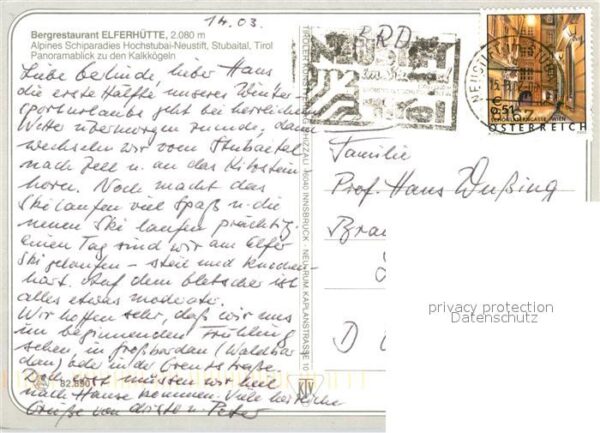 14.03.
Bergrestaurant ELFERHÜTTE, 2.080 m
Alpines Schiparadies Hochstubai-Neustift, Stubaital, Tirol
Panoramablick zu den Kalkkögeln
Liebe Gerlinde, lieber Hans
die erste Hälfte unseres Winter-
sporturlaubs geht bei herrlichem
Wetter übermorgen zu Ende, dann
wechseln wir vom Stubaital
nach Zell u. an das Kitzstein-
horn. Noch macht das
Skilaufen viel Spaß u. die
neuen Ski laufen prächtig.
Einen Tag sind wir am Elfer
Ski gelaufen - steil und knochen-
hart. Auf dem Gletscher ist
alles etwas moderater.
Wir hoffen sehr, daß wir uns
im beginnenden Frühling
sehen, in
oder in der
Doch erst müssen wir heil
nach Hause kommen. Viele herzliche
Grüße von Christa u. Peter
82.890
BRD
Tirol
6040 INNSBRUCK · NEU-RUM KAPLANSTRASSE
KTV
NEUSTIFT IM STUBAITAL
€ 0,51
WIEN
ÖSTERREICH
Familie
Prof. Hans Wußing
D
privacy protection
Datenschutz